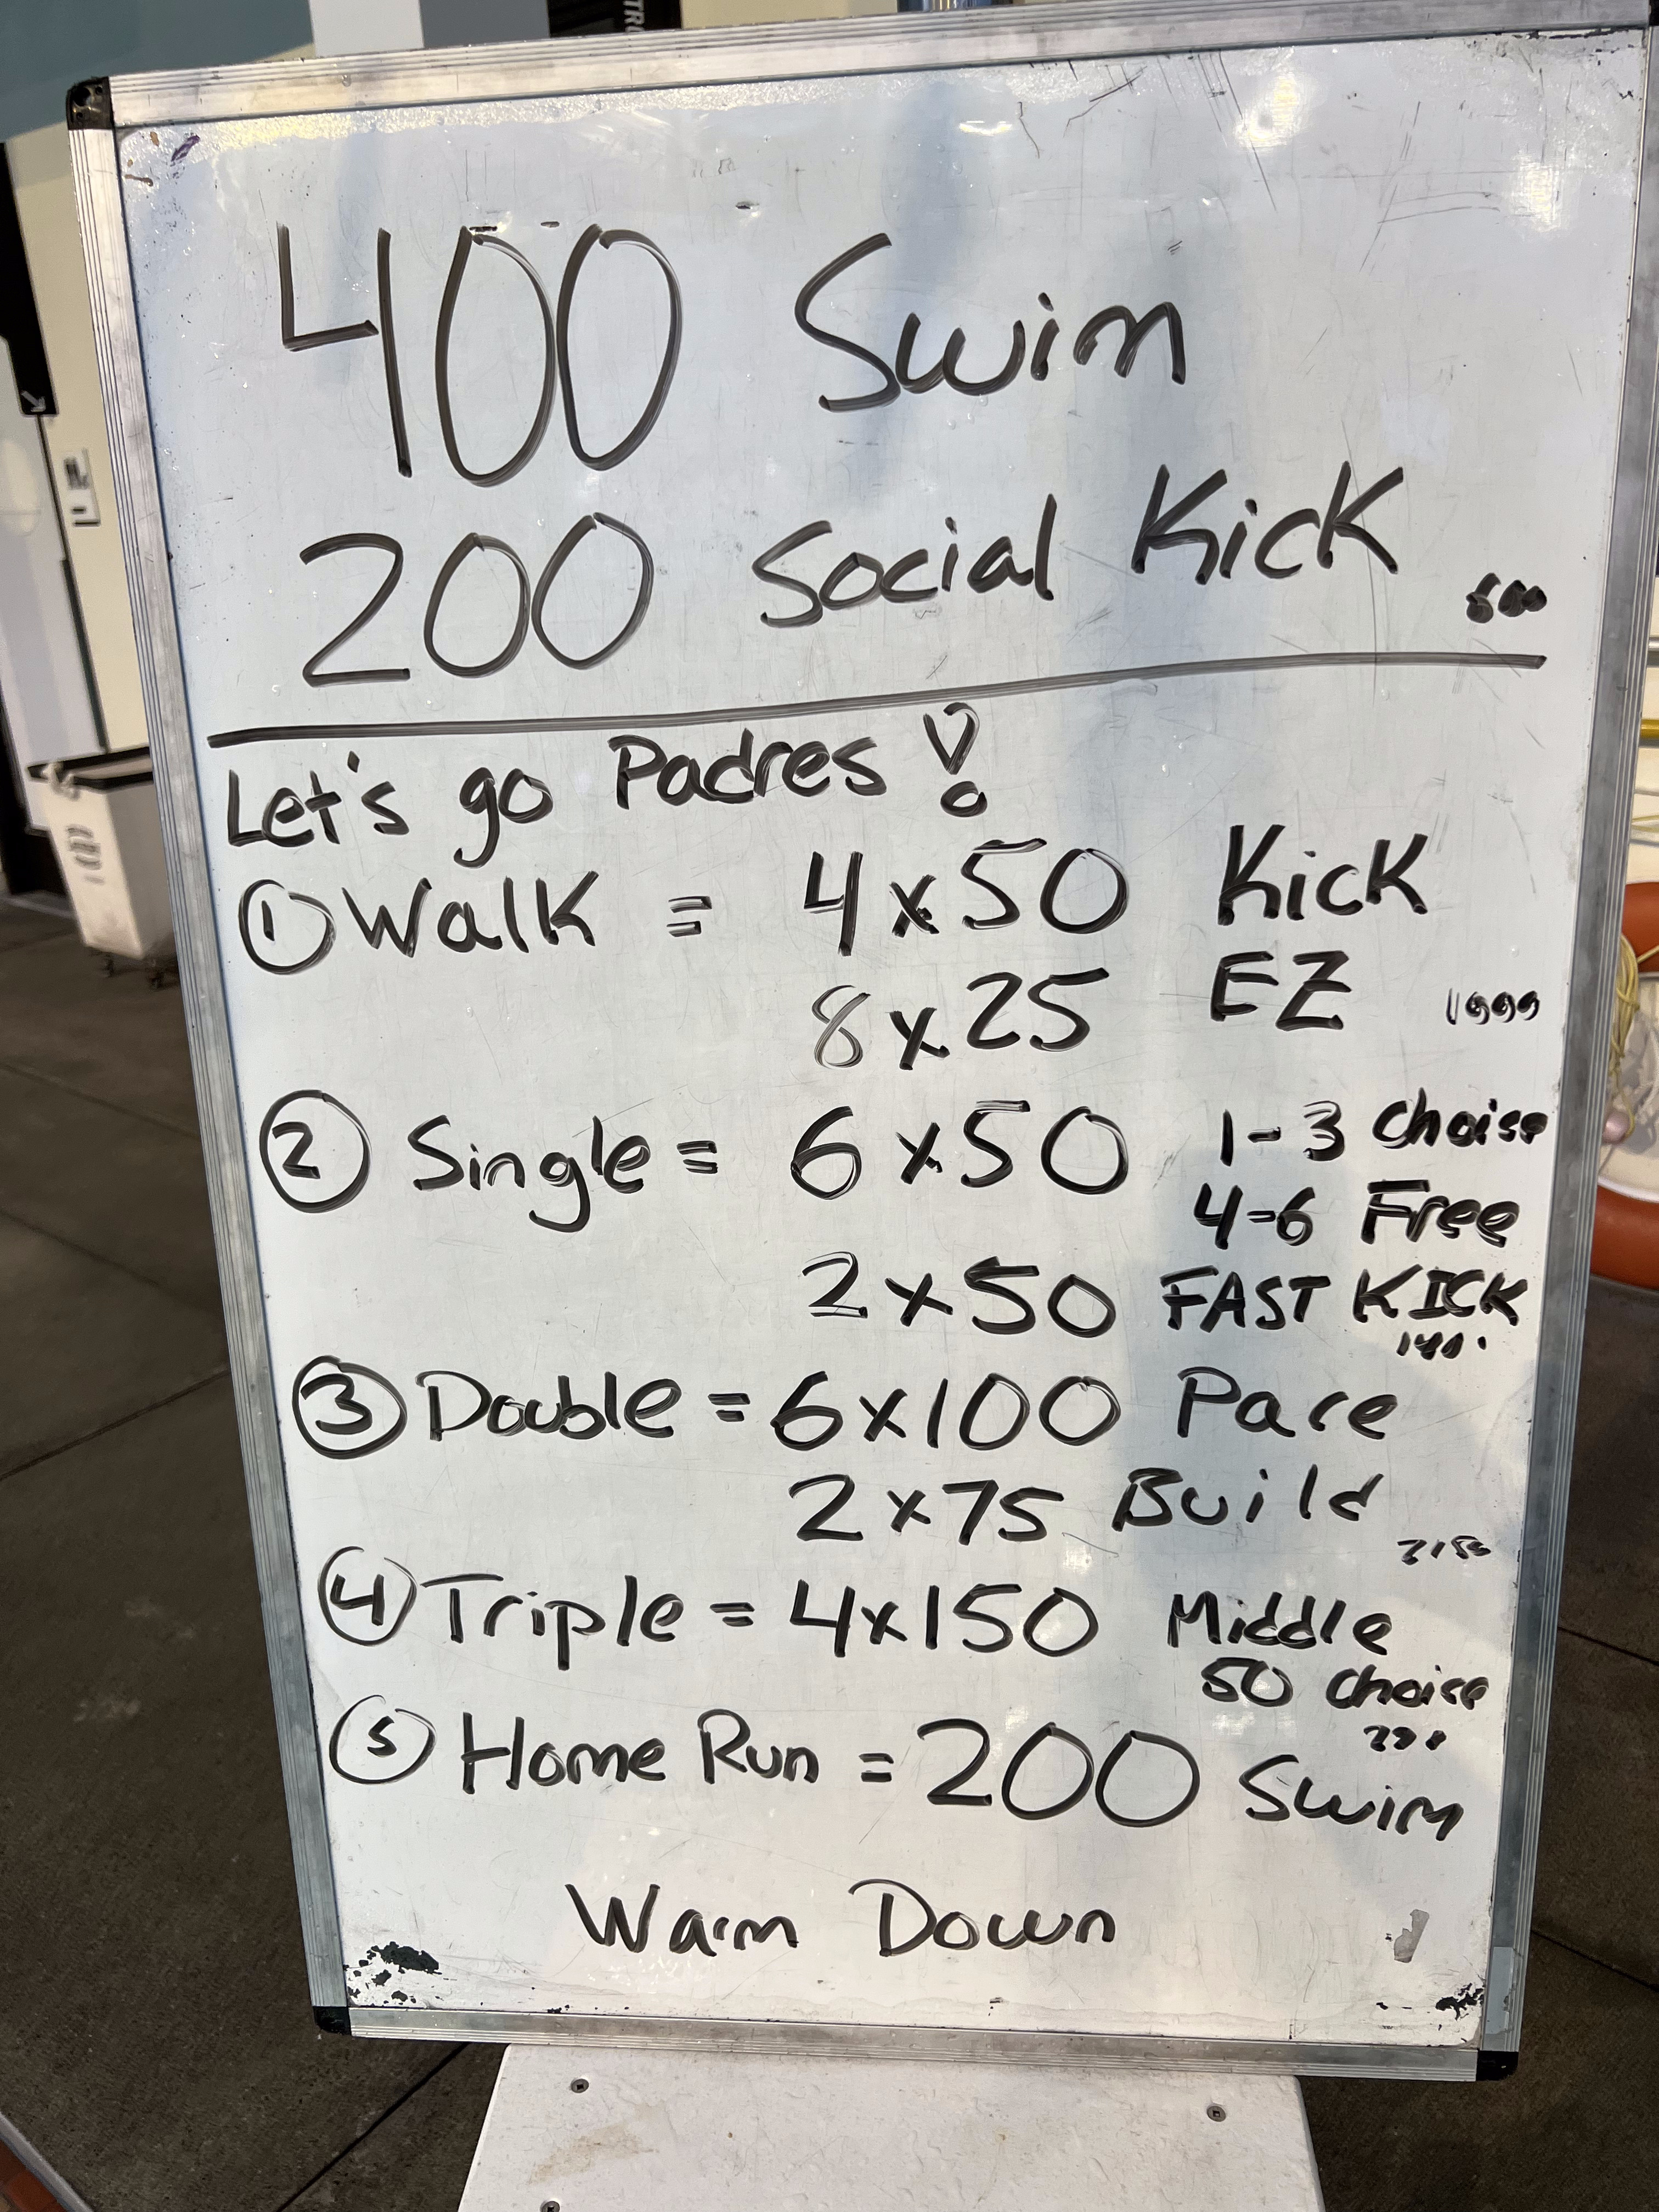 400 Swim
200 Social Kick
600
Let's go Padres!
① Walk = 4x50 Kick
8x25 EZ
1000
② Single = 6x50 1-3 Choice
4-6 Free
2x50 FAST KICK
1400
③ Double = 6x100 Pace
2x75 Build
2150
④ Triple = 4x150 Middle
50 choice
⑤ Home Run = 200 Swim
Warm Down